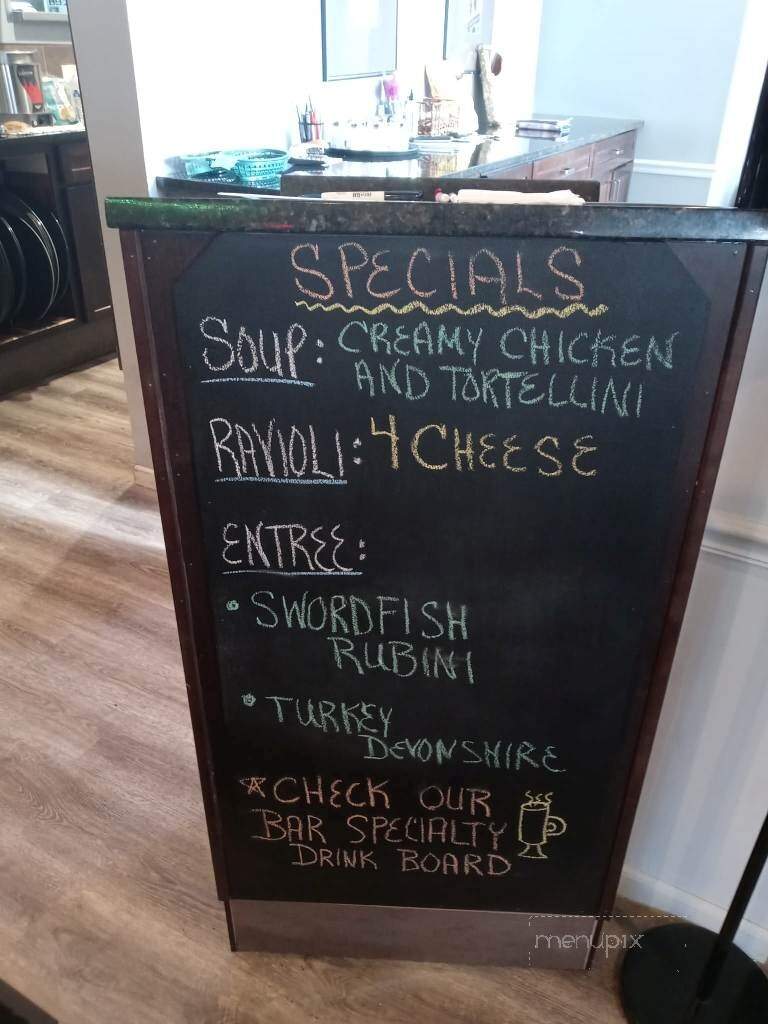 SPECIALS
SOUP: CREAMY CHICKEN
AND TORTELLINI
RAVIOLI: 4 CHEESE
ENTREE:
• SWORDFISH
RUBINI
• TURKEY
DEVONSHIRE
☆ CHECK OUR
BAR SPECIALTY
DRINK BOARD
menupix